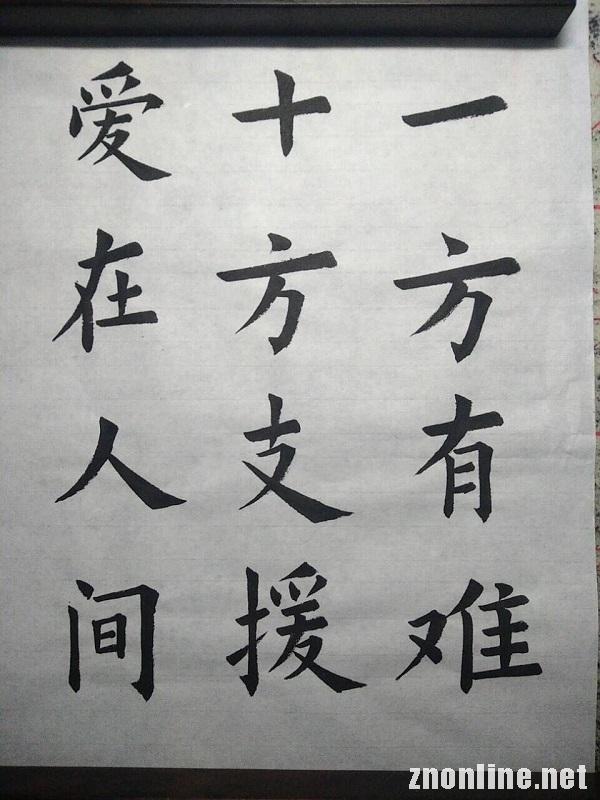 一方有难
十方支援
爱在人间
znonline.net